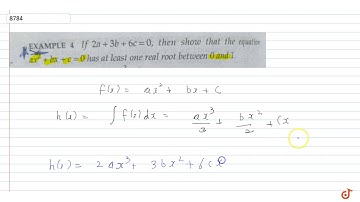 8784
EXAMPLE 4 If 2a + 3b + 6c = 0, then show that the equation
ax² + bx + c = 0 has at least one real root between 0 and 1.
f(x) = ax² + bx + c
h(x) = ∫ f(x) dx = ax³/3 + bx²/2 + cx
h(x) = 2ax³ + 3bx² + 6cx